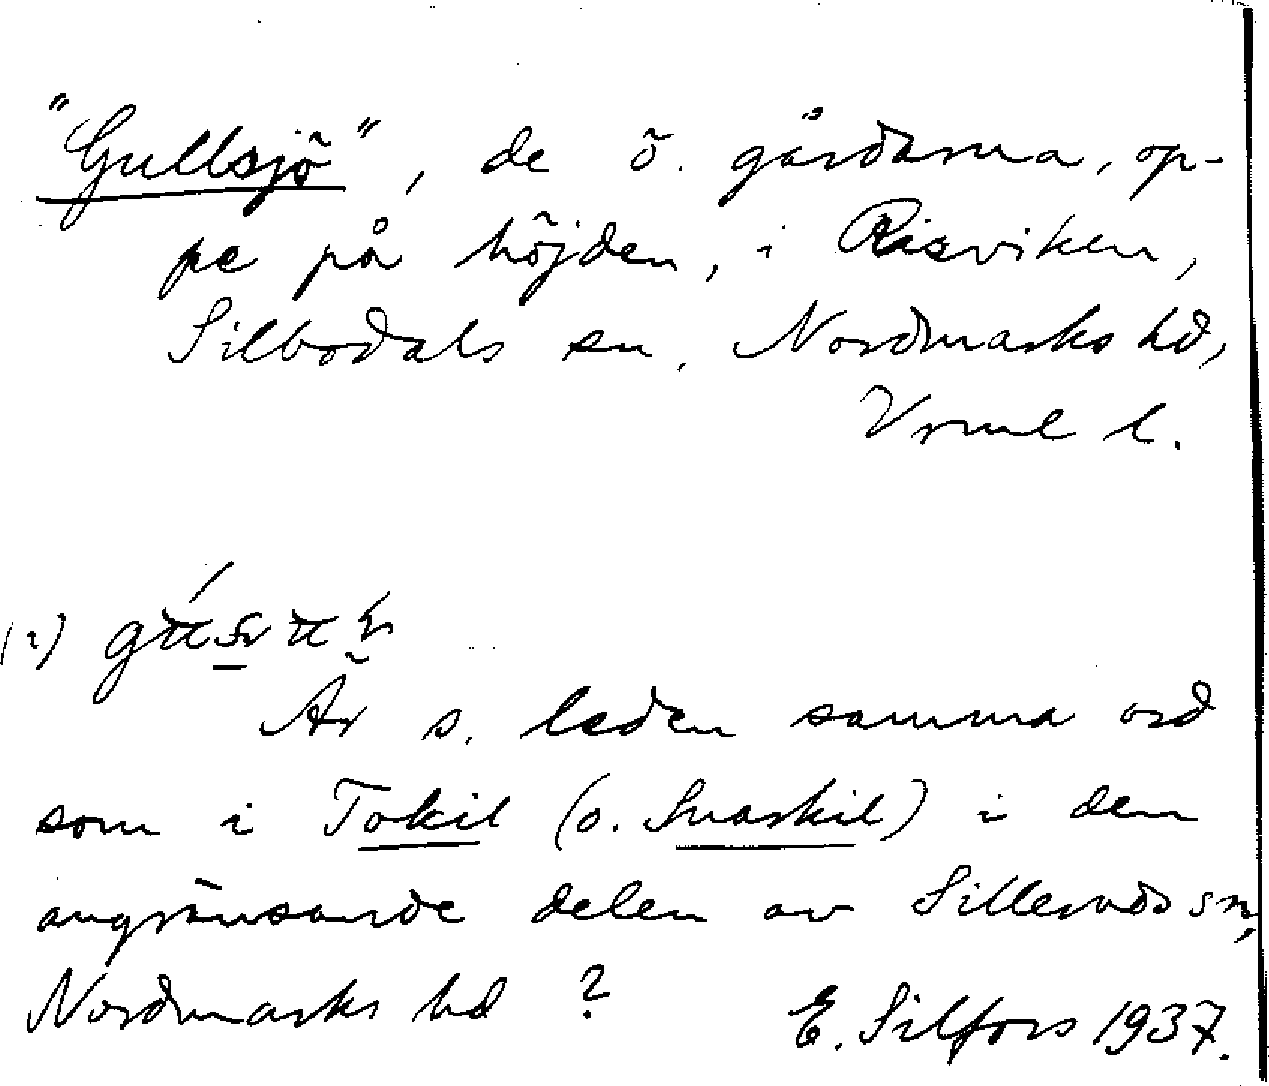 "Gullsjö", de ö. gårdarna, op-
pe på höjden, i Risviken,
Silbodals sn, Nordmarks hd,
Vrml l.
Är s. leden samma ord
som i Tokil (o. Snarkil) i den
angränsande delen av Silleruds sn,
Nordmarks hd ?
E. Silfors 1937.